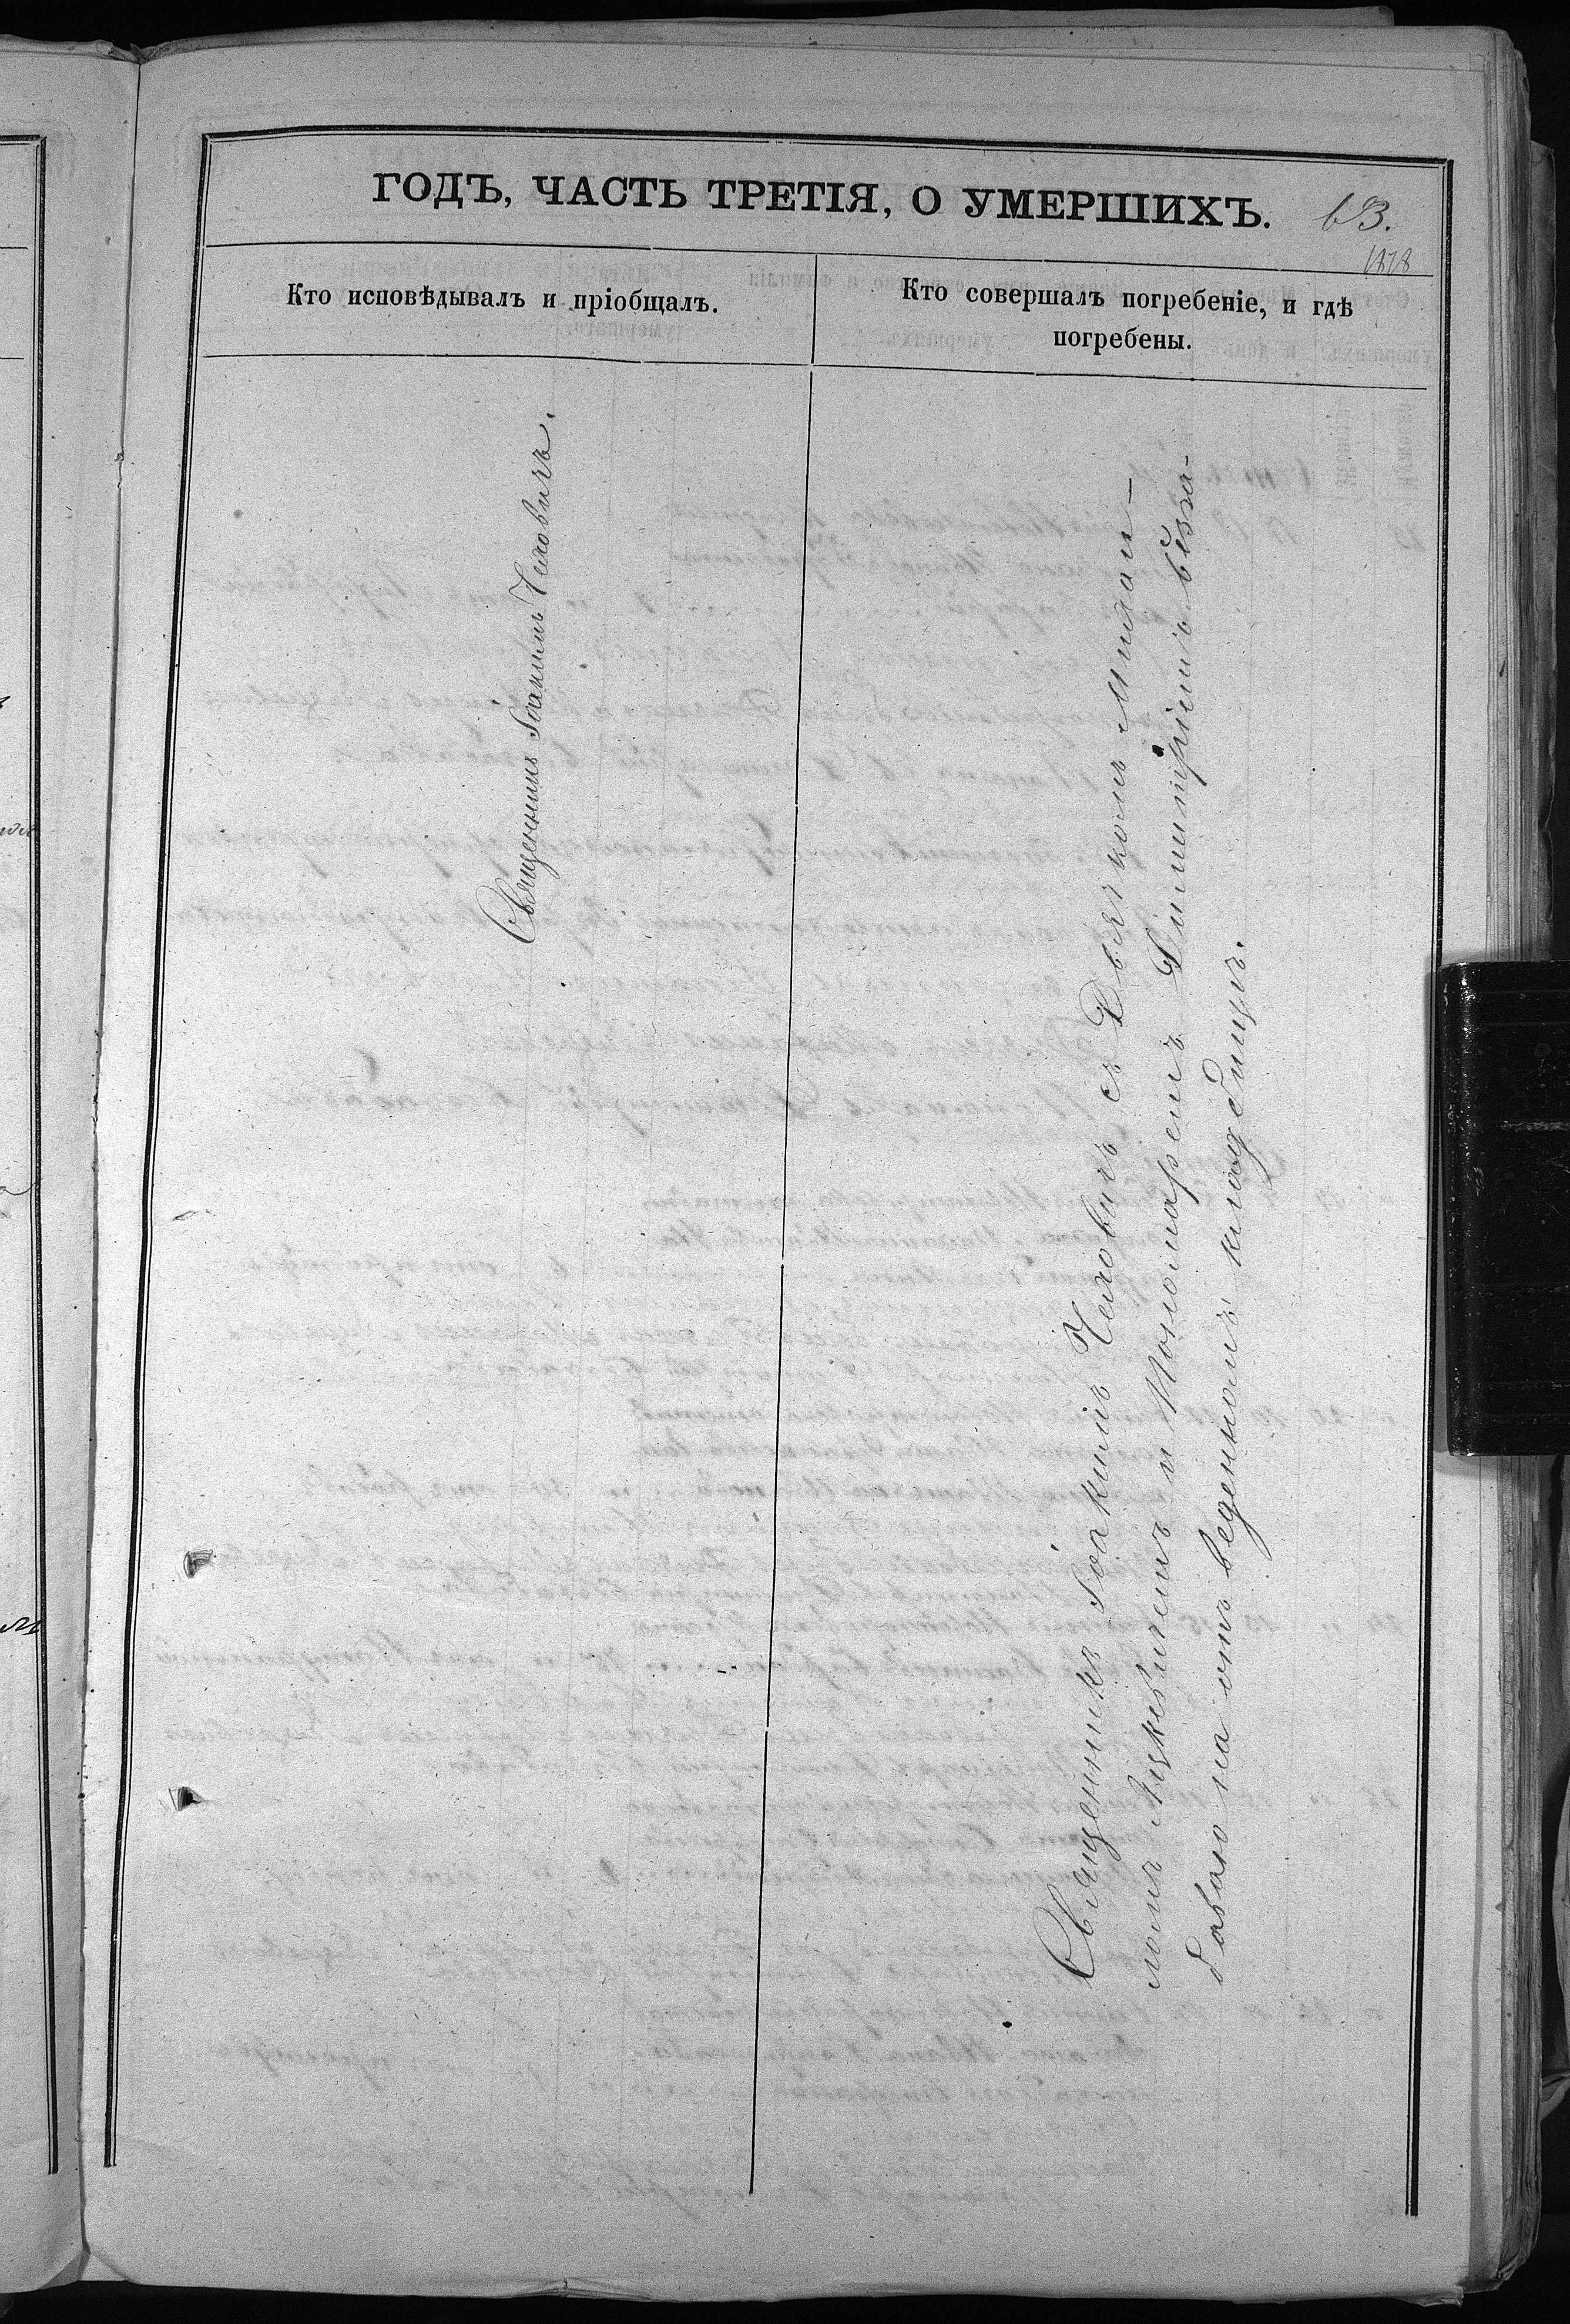 ГОДЪ, ЧАСТЬ ТРЕТІЯ, О УМЕРШИХЪ.
63.
1878
Кто исповѣдывалъ и пріобщалъ.
Кто совершалъ погребеніе, и гдѣ
погребены.
Священникъ Іоакимъ Чеховичъ.
Священникъ Іоакимъ Чеховичъ съ Дьячкомъ Михаи-
ломъ Яцкевичемъ и Пономаремъ Димитріемъ
на отведенномъ кладбищѣ.